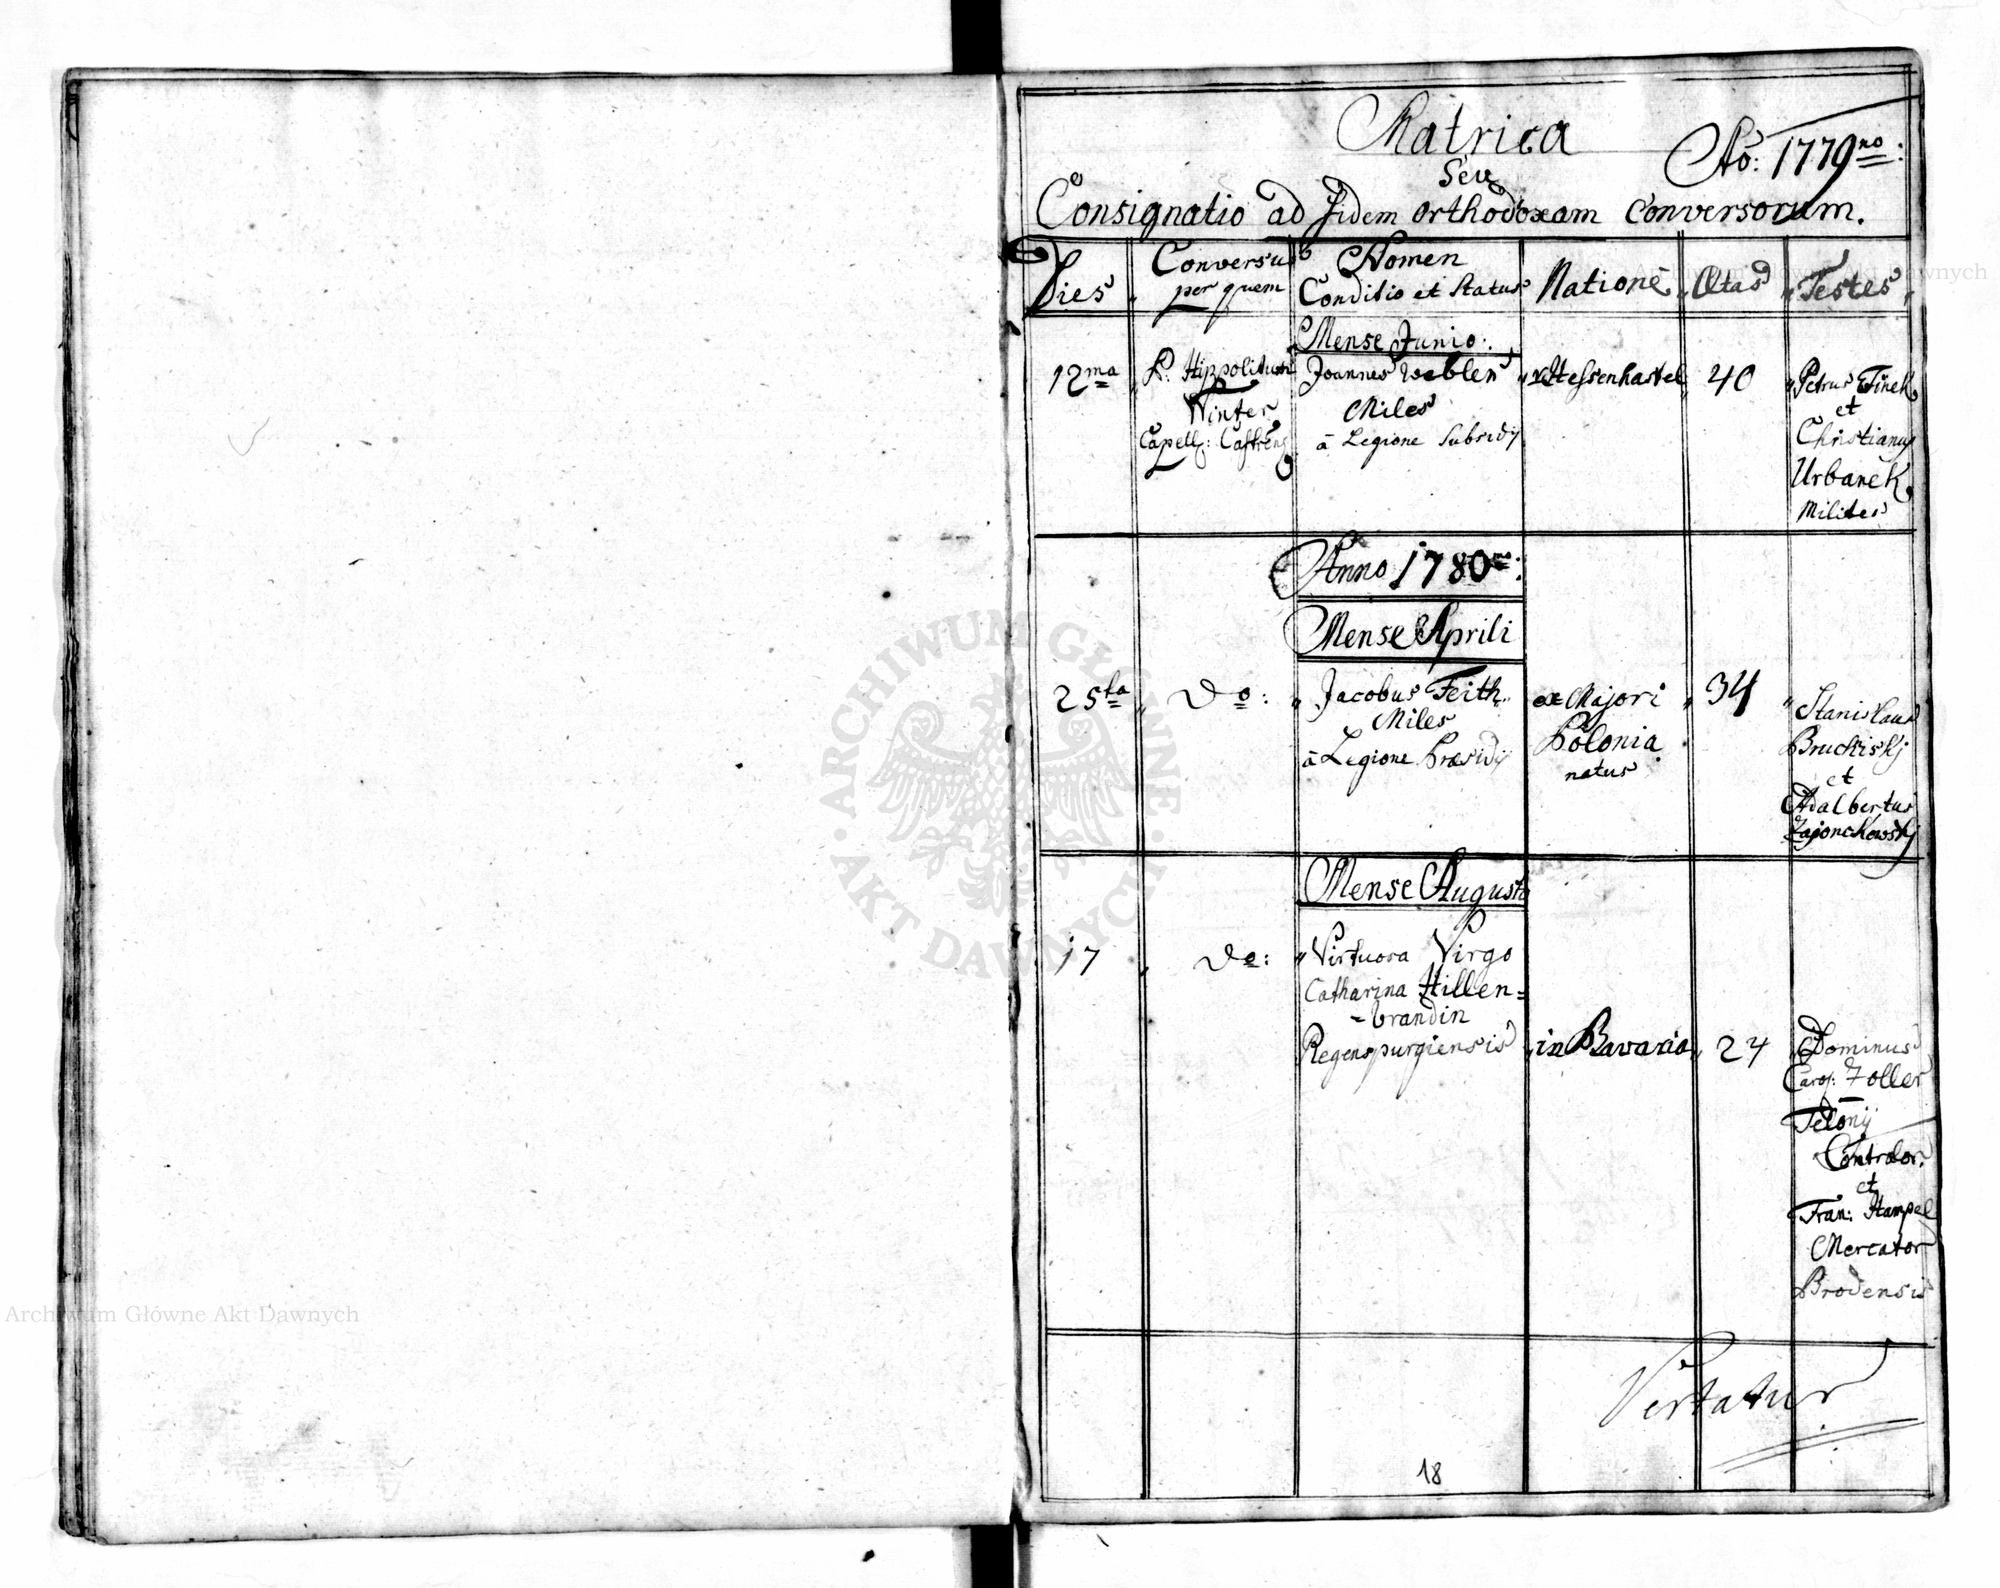 Matrica
Aō: 1779no:
Seu
Consignatio ad Fidem orthodoxam Conversorum.
Dies
Conversus
per quem
Nomen
Conditio et Status
Natione
Ætas
Testes
Mense Junio:
12ma
P: Hippolitus
Winter
Capell: Castrens
Joannes Weblen
Miles
à Legione Subsidij
ex Hessenkastel
40
Petrus Finek
et
Christianus
Urbanek
Milites
Anno 1780mo:
Mense Aprili
25ta
Do:
Jacobus Feith
Miles
à Legione Præsidij
ex Majori
Polonia
natus
34
Stanislaus
Bruckiskj
et
Adalbertus
Zajonckowskj
Mense Augusto
17
Do:
Virtuosa Virgo
Catharina Hillen=
=brandin
Regenspurgiensis
in Bavaria
24
Dominus
Carol: Zoller
Telonij
Contralor:
et
Fran: Hampel
Mercator
Brodensis
Vertatur
18
Archiwum Główne Akt Dawnych
ARCHIWUM GŁÓWNE · AKT DAWNYCH ·
Archiwum Główne Akt Dawnych